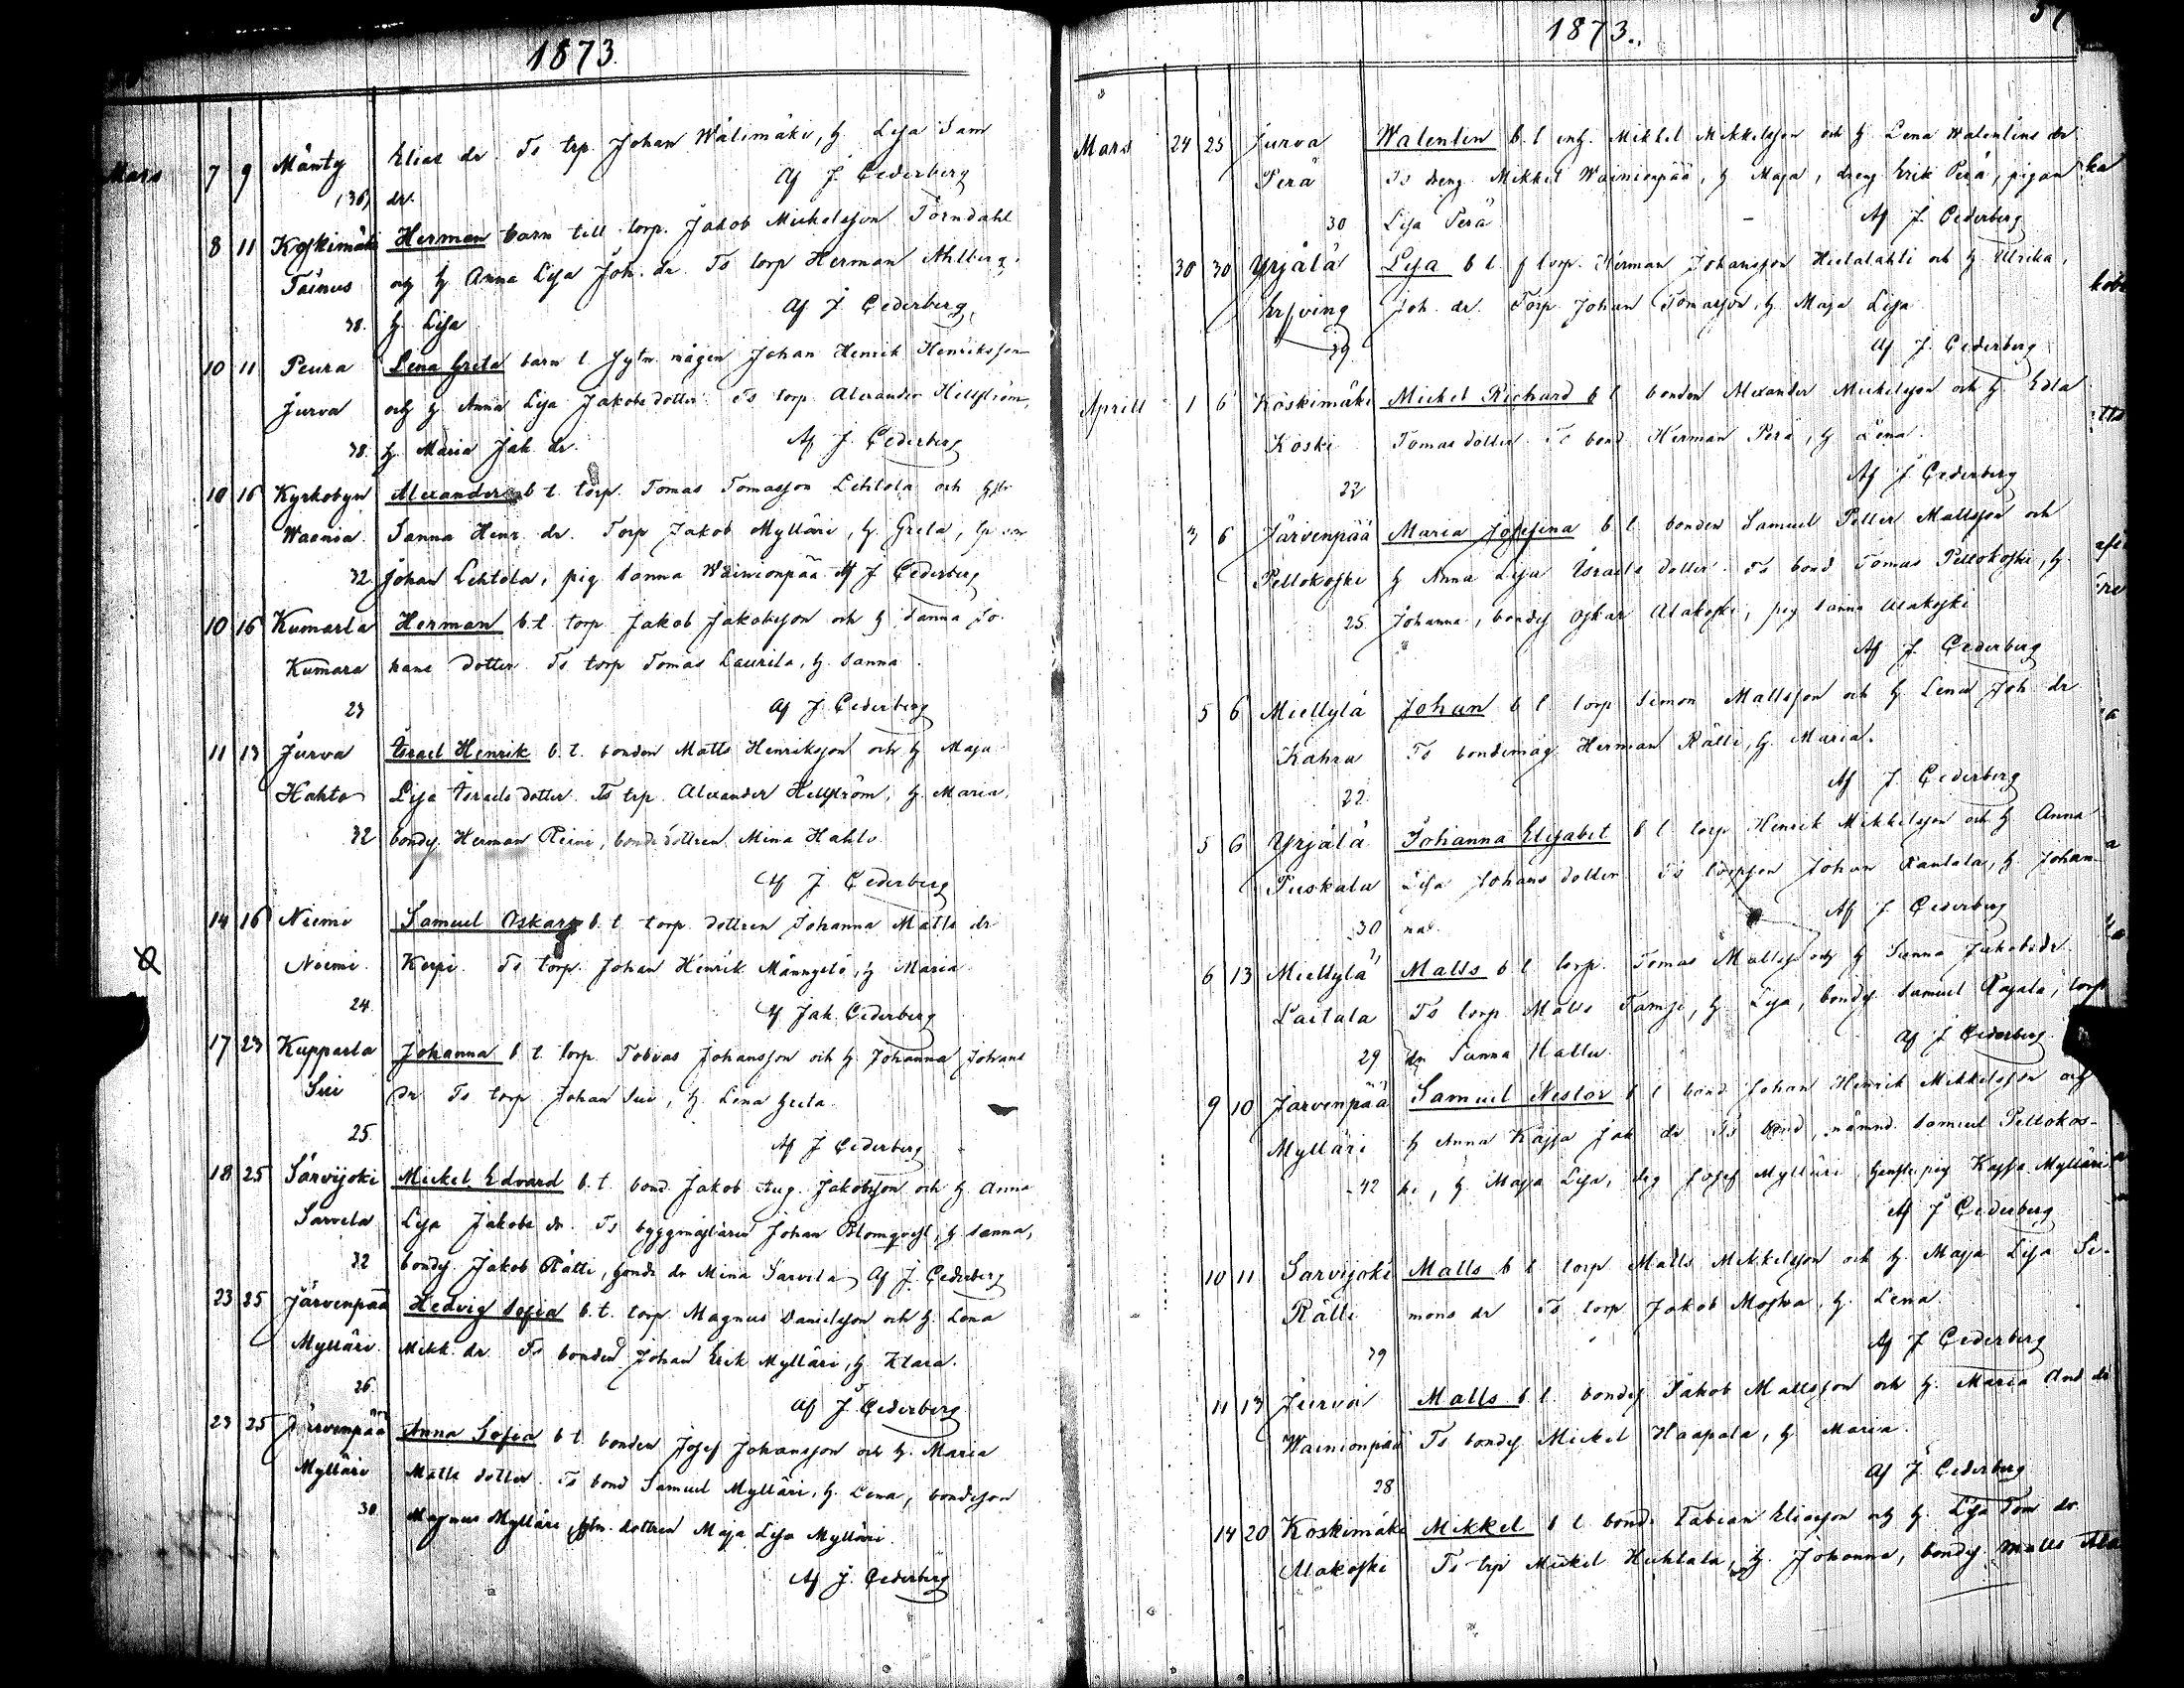 1873.
Mars 7 9 Mänty Elias dr. Ts trp. Johan Wälimäki, h. Lisa Sam
136, dr. Af J. Cederberg
8 11 Koskimäki Herman barn till torp. Jakob Mickelsson Törndahl
Tainus och h Anna Lisa Joh. dr. Ts torp Herman Ahlberg,
38. h Lisa Af J Cederberg
10 11 Peura Lena Greta barn t Johan Henrik Henriksson
Jurva och h Anna Lisa Jakobs dotter. Ts torp. Alexander Hellström,
38. h. Maria Jak. dr. Af J. Cederberg
10 16 Kyrkobyn Alexander b t. torp. Tomas Tomasson Lehtola och hstr
Wacnia. Sanna Henr. dr. Torp Jakob Mylläri, h. Greta,
32 Johan Lehtola, pig Sanna Wainionpää Af J Cederberg
10 16 Kumarla Herman b. t. torp Jakob Jakobsson och h Sanna Jo-
Kumara hans dotter. Ts torp Tomas Laurila, h. Sanna.
23 Af J. Cederberg
11 13 Jurva Israel Henrik b. t. bonden Matts Henriksson och h. Maja
Hahto Lisa Israels dotter. Ts trp. Alexander Hellström, h. Maria,
32 bondes. Herman Reini, bonde dottren Mina Hahto
Af J Cederberg
14 16 Niemi Samuel Oskar b. t torp. dottren Johanna Matts dr
Niemi. Korpi. Ts torp. Johan Henrik Männystö, h Maria
24. Af Jak. Cederberg
17 23 Kupparla Johanna b. t. torp. Tobias Johansson och h. Johanna Johans
Sui dr Ts torp Johan Sui, h. Lena Greta.
25. Af J Cederberg
18 25 Särvijoki Mickel Edvard b. t. bond. Jakob Aug. Jakobsson och h. Anna
Sarvela Lisa Jakobs dr. Ts byggmästaren Johan Blomqvist, h Sanna,
32 bondes. Jakob Rätti, bonde dr Mina Sarvela Af J. Cederberg
23 25 Järvenpää Hedvig Sofia b. t. torp Magnus Danielsson och h. Lena
Mylläri. Mikk. dr. Ts bonden Johan Erik Mylläri, h. Klara.
26. Af J. Cederberg
23 25 Järvenpää Anna Sofia b t. bonden Josef Johansson och h. Maria
Mylläri Matts dotter. Ts bond Samuel Mylläri, h. Lena, bondeson
30 Magnus Mylläri, dottren Maja Lisa Mylläri.
Af J. Cederberg
1873.
Mars 24 25 Jurva Walenten b. t inh. Mikkel Mikkelsson och h Lena Walentins dr
Perä Ts dreng Mikkel Wainionpää, h Maja, dreng Erik Perä, pigan
30 Lisa Perä Af J. Cederberg
30 30 Yrjälä Lisa b t. f torp. Herman Johansson Hietalahti och h Ulrika,
Erfving Joh. dr. Torp Johan Tomasson, h. Maja Lisa
29 Af J. Cederberg
Aprill 1 6 Koskimäki Mickel Richard b t bonden Alexander Mickelsson och h Edla
Koski Tomas dotter. Ts bond Herman Perä, h Lena.
22 Af J Cederberg
3 6 Järvenpää Maria Josefina b. t. bonden Samuel Petter Mattsson och
Peltokoski h Anna Lisa Israels dotter. Ts bond Tomas Peltokoski, h.
25. Johanna, bondes Oskar Alakoski, pig Sanna Alakoski
Af J. Cederberg
5 6 Miettylä Johan b t torp Simon Mattsson och h. Lena Joh dr
Kahra Ts bondemåg Herman Rätti, h. Maria.
22. Af J Cederberg
5 6 Yrjälä Johanna Elisabet b t torp Henrik Mikkelsson och h Anna
Puskala Lisa Johans dotter Ts Johan Rantala, h. Johan-
30 na. Af J Cederberg
6 13 Miettylä Matts b t torp. Tomas Mattss och h Sanna Jakobs dr
Laitala Ts torp Matts, h Lisa, bondes Samuel Rajala, torp
29 dr Sanna Af J Cederberg
9 10 Järvenpää Samuel Nestor b t bond Johan Henrik Mikkelsson och
Mylläri h Anna Kajsa Jak dr Ts bond, nämnd. Samuel Peltokos-
42 ki, h Maja Lisa, drg Josef Mylläri, pig Kajsa Mylläri
Af J Cederberg
10 11 Sarvijoki Matts b t torp Matts Mikkelsson och h. Maja Lisa Si-
Rätti mons dr Ts torp Jakob, h. Lena
39 Af J Cederberg
11 13 Jurva Matts b t. bondes Jakob Mattsson och h. Maria And dr
Wainionpää Ts bondes Mickel Haapala, h Maria.
28 Af J. Cederberg
14 20 Koskimäki Mikkel b t bond. Fabian Eliasson och h. Lisa Tom dr.
Alakoski Ts trp Mickel Huhtala, h. Johanna, bondes Matts Ala